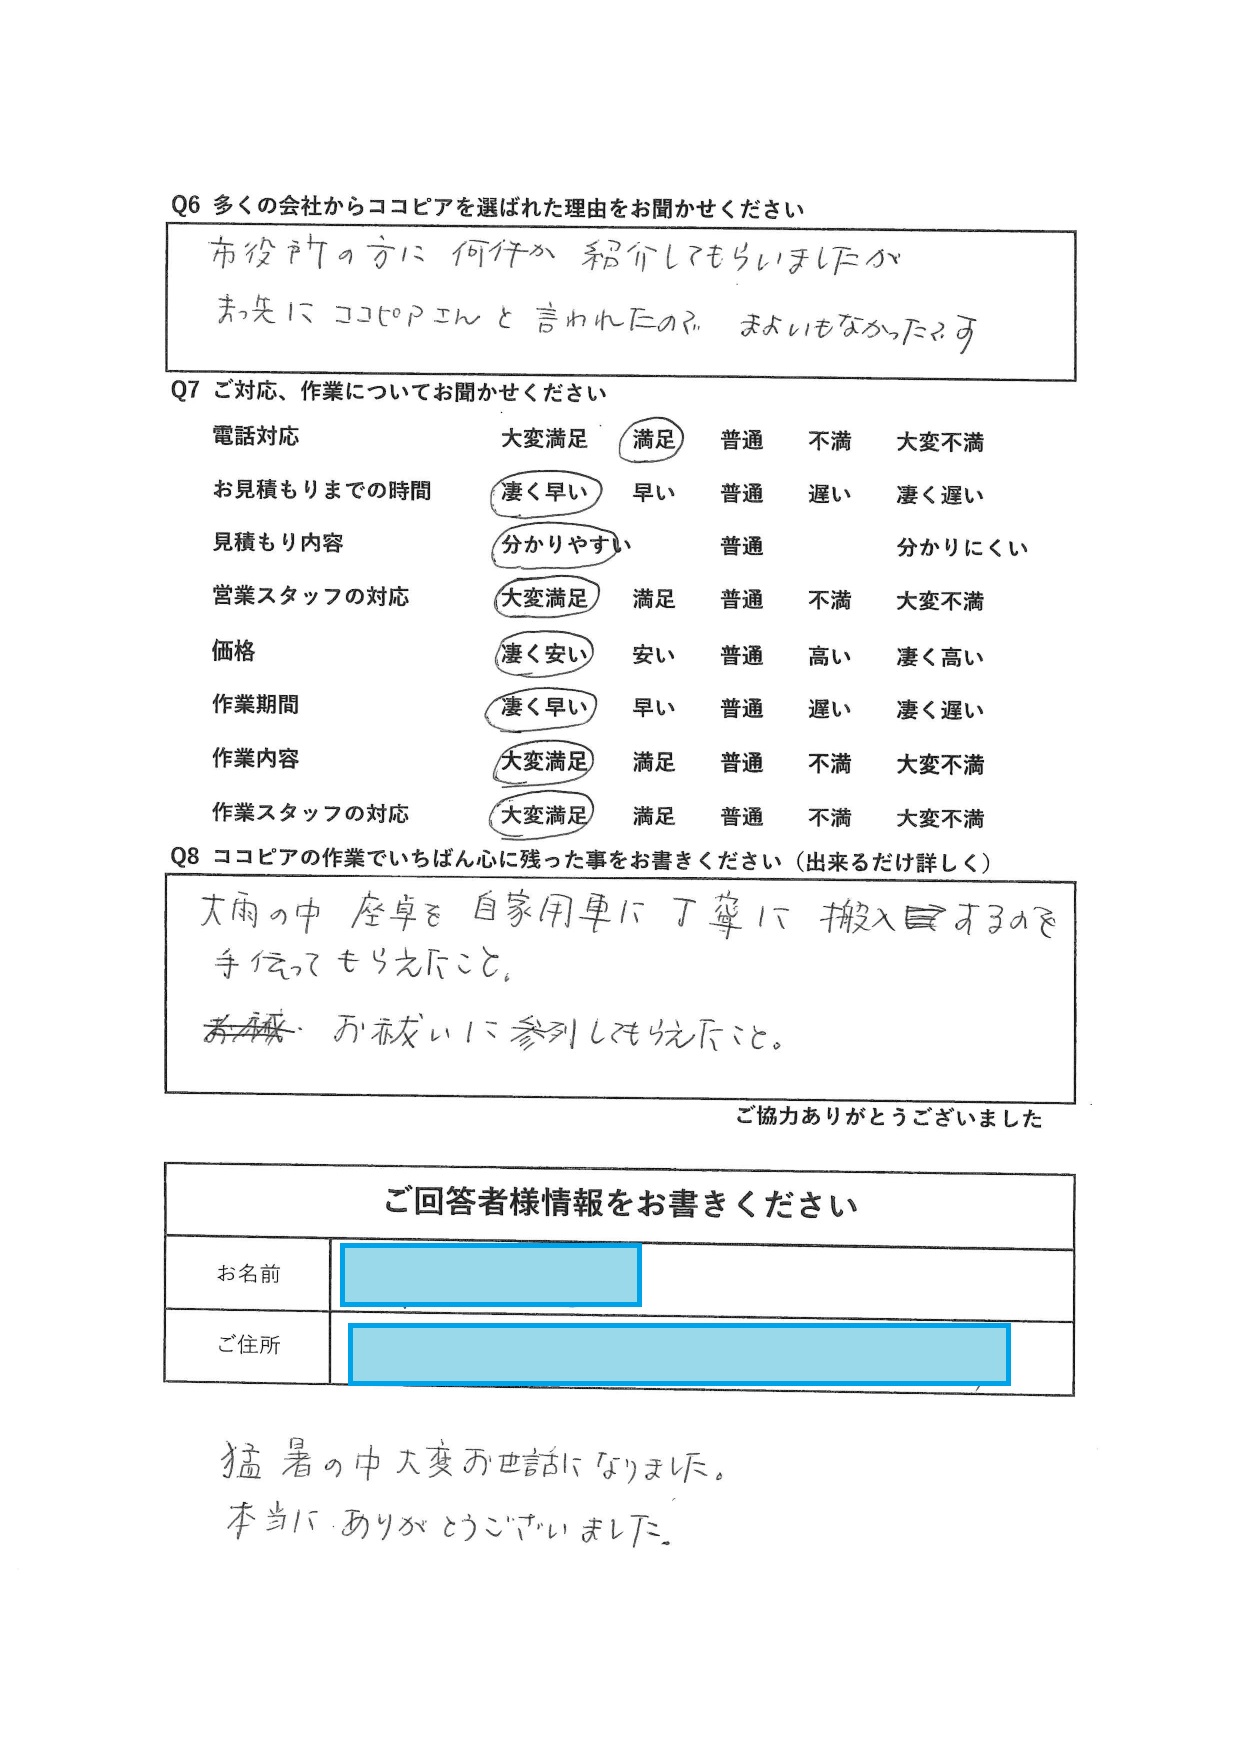 Q6 多くの会社からココピアを選ばれた理由をお聞かせください
市役所の方に 何件か 紹介してもらいましたが
まっ先に ココピアさんと 言われたので まよいもなかったです
Q7 ご対応、作業についてお聞かせください
電話対応 大変満足 満足 普通 不満 大変不満
お見積もりまでの時間 凄く早い 早い 普通 遅い 凄く遅い
見積もり内容 分かりやすい 普通 分かりにくい
営業スタッフの対応 大変満足 満足 普通 不満 大変不満
価格 凄く安い 安い 普通 高い 凄く高い
作業期間 凄く早い 早い 普通 遅い 凄く遅い
作業内容 大変満足 満足 普通 不満 大変不満
作業スタッフの対応 大変満足 満足 普通 不満 大変不満
Q8 ココピアの作業でいちばん心に残った事をお書きください（出来るだけ詳しく）
大雨の中 座卓を 自家用車に 丁寧に 搬入するのを
手伝って もらえたこと。
お祓いに 参列してもらえたこと。
ご協力ありがとうございました
ご回答者様情報をお書きください
お名前
ご住所
猛暑の中大変お世話になりました。
本当に ありがとうございました。